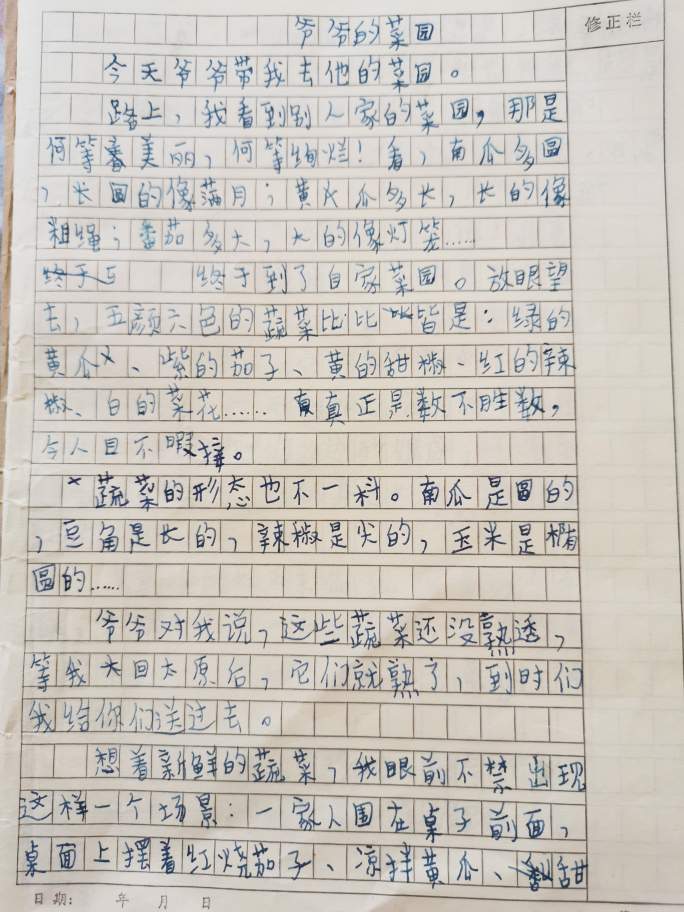 爷爷的菜园
修正栏
今天爷爷带我去他的菜园。
路上，我看到别人家的菜园，那是
何等美丽，何等绚烂！看，南瓜多圆
，长圆的像满月；黄瓜多长，长的像
粗绳；番茄多大，大的像灯笼……
终于到了自家菜园。放眼望
去，五颜六色的蔬菜比比皆是：绿的
黄瓜、紫的茄子、黄的甜椒、红的辣
椒、白的菜花……真正是数不胜数，
令人目不暇接。
蔬菜的形态也不一料。南瓜是圆的
，豆角是长的，辣椒是尖的，玉米是椭
圆的……
爷爷对我说，这些蔬菜还没熟透，
等我回太原后，它们就熟了，到时们
我给你们送过去。
想着新鲜的蔬菜，我眼前不禁出现
这样一个场景：一家人围在桌子前面，
桌面上摆着红烧茄子、凉拌黄瓜、甜
日期： 年 月 日